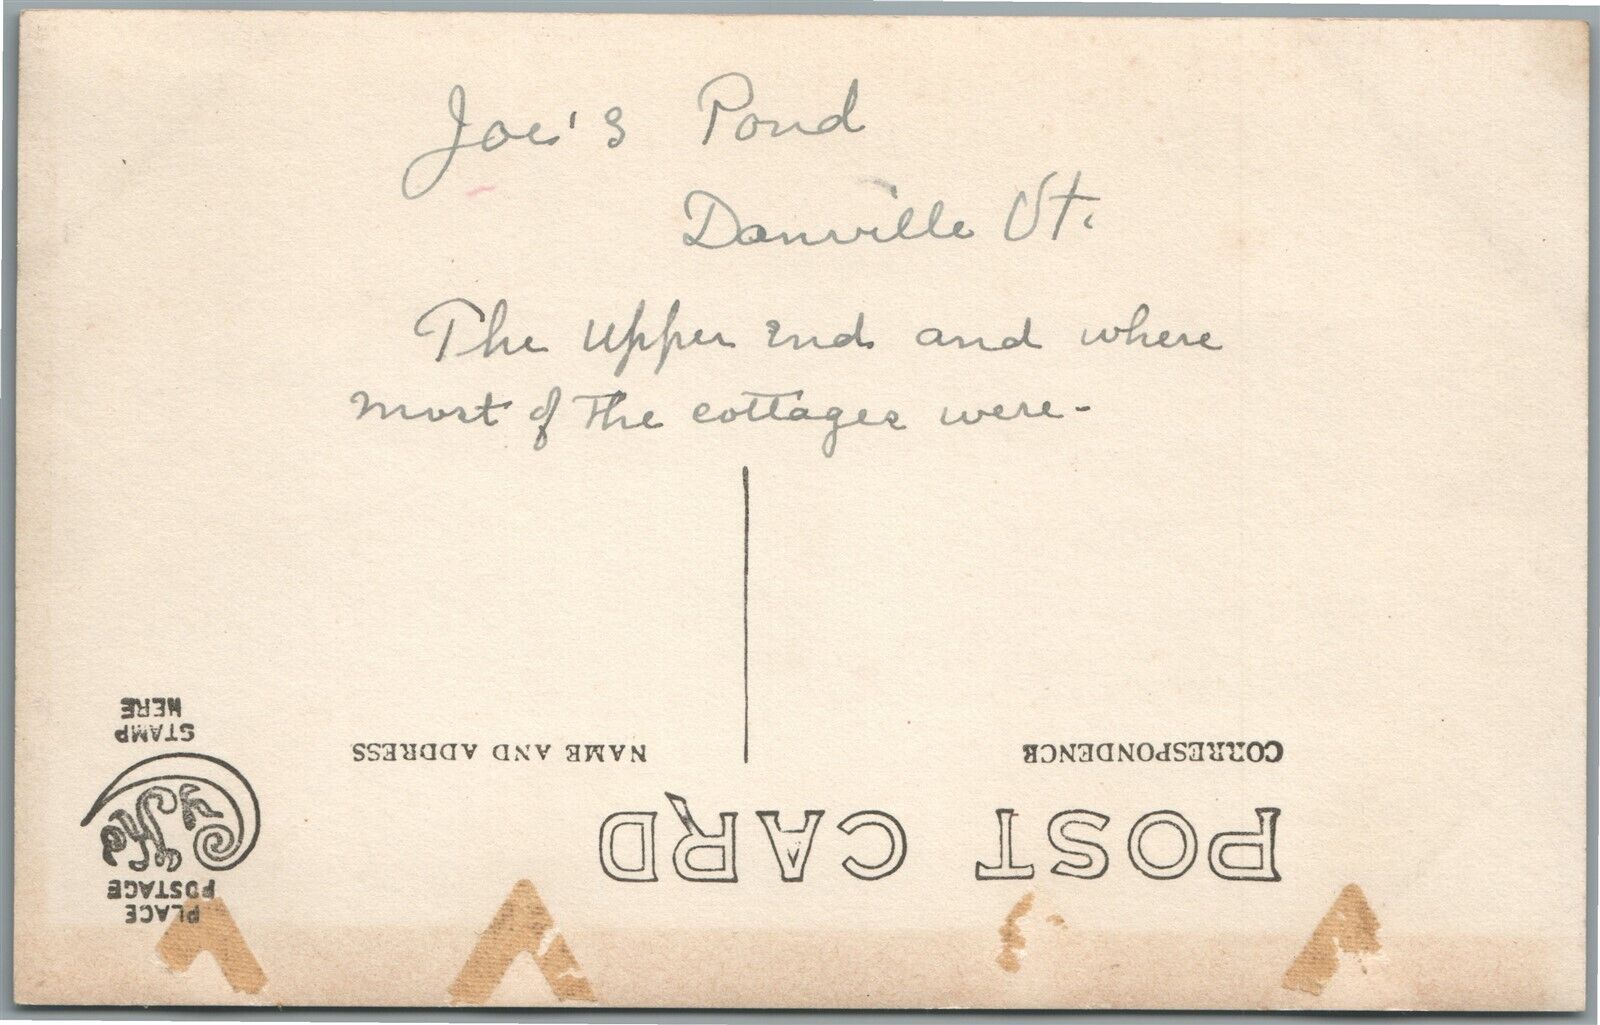 Joe's Pond
Danville Vt.
The upper end and where
most of the cottages were-
POST CARD
CORRESPONDENCE
NAME AND ADDRESS
PLACE
POSTAGE
STAMP
HERE